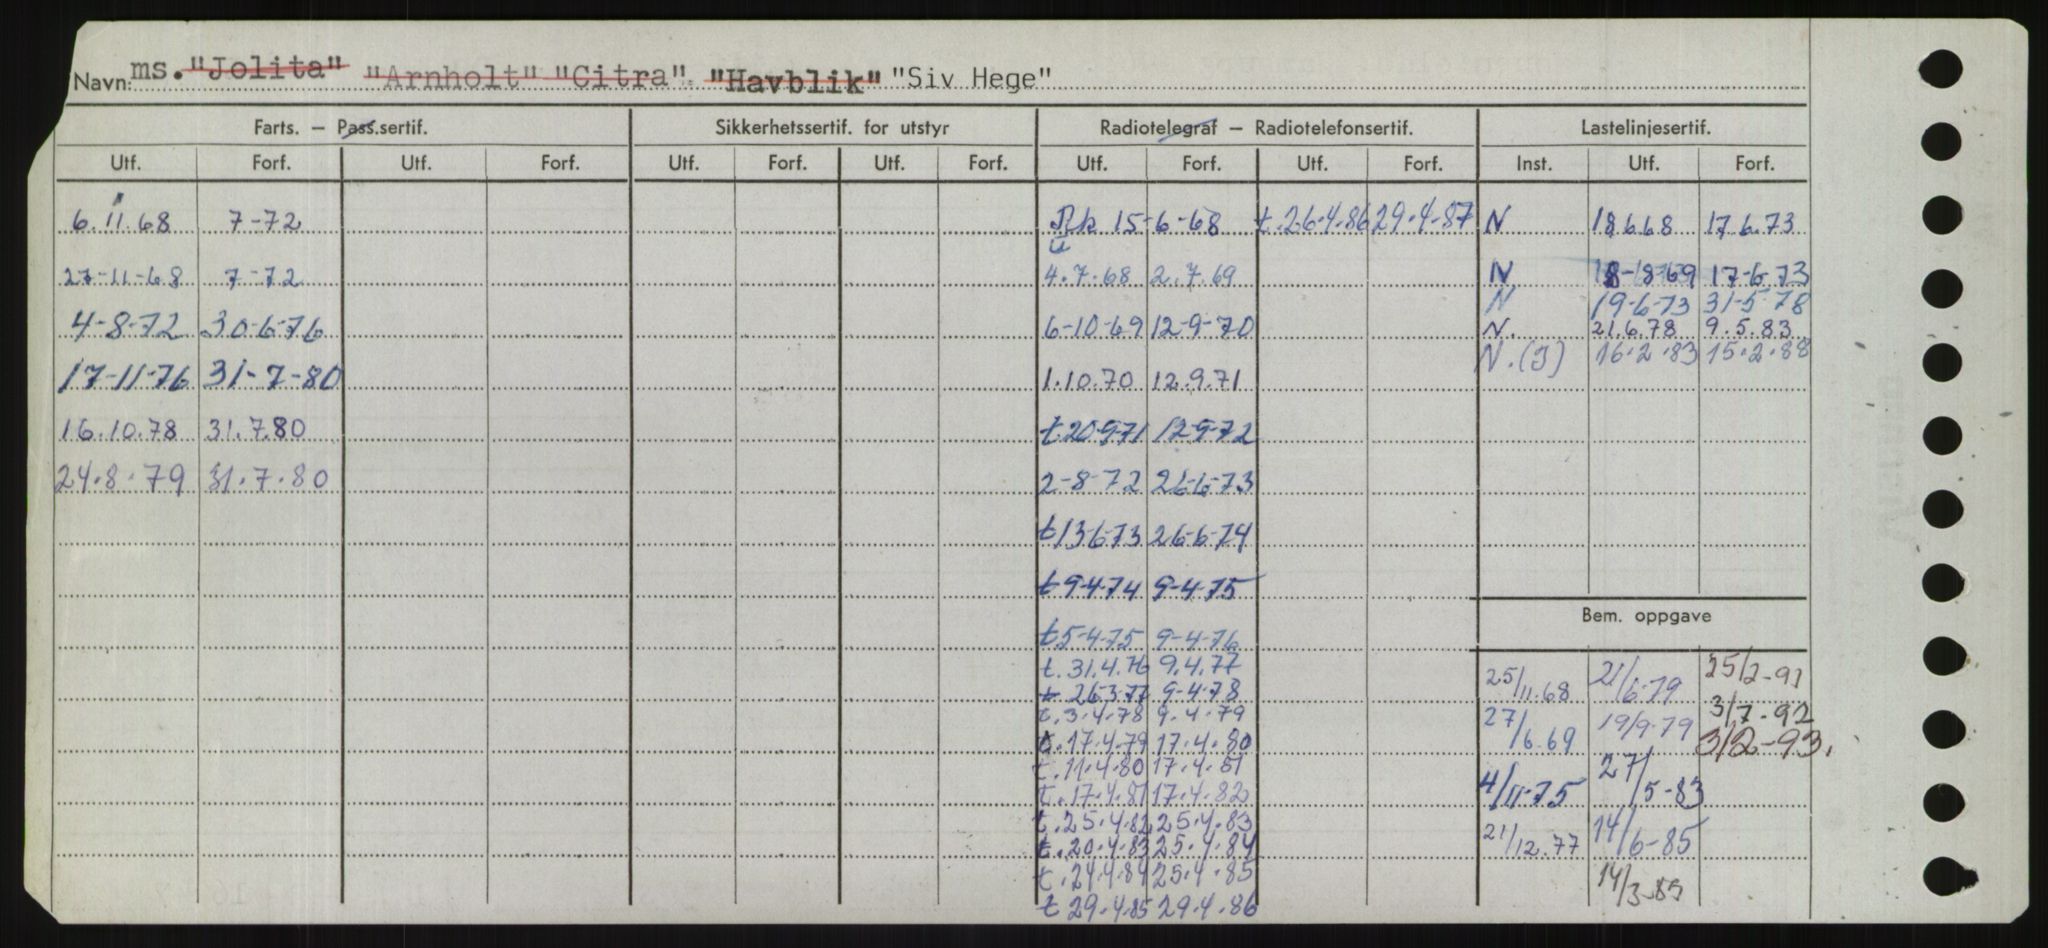 Navn: ms. "Jolita" "Arnholt" "Citra". "Havblik" "Siv Hege"
Farts. – Pass.sertif. Sikkerhetssertif. for utstyr Radiotelegraf – Radiotelefonsertif. Lastelinjesertif.
Utf. Forf. Utf. Forf. Utf. Forf. Utf. Forf. Utf. Forf. Utf. Forf. Inst. Utf. Forf.
6.11.68 7-72 15-6-68 t.26.4.86 29.4.87 N 18.6.68 17.6.73
27-11-68 7-72 4.7.68 2.7.69 N 18-8-69 17-6-73
N 19-6-73 31-5-78
4-8-72 30-6-76 6-10-69 12-9-70 N. 21.6.78 9.5.83
N.(I) 16.2.83 15.2.88
17-11-76 31-7-80 1.10.70 12.9.71
16.10.78 31.7.80 t.20-9-71 12-9-72
24.8.79 31.7.80 2-8-72 26-6-73
t13-6-73 26-6-74
t9-4-74 9-4-75
Bem. oppgave
t5-4-75 9-4-76
t.31.4.76 9.4.77 25/11.68 21/6-79 25/2-91
t 26.3.77 9-4-78
t.3.4.78 9.4.79 27/6.69 19/9-79 3/7-92
t.17.4.79 17.4.80 3/2-93.
t.11.4.80 17.4.81
t.17.4.81 17.4.82 4/11-75 27/5-83
t.25.4.82 25.4.83
t.20.4.83 25.4.84 21/12.77 14/6-85
t.24.4.84 25.4.85
t 29.4.85 29.4.86 14/3-85